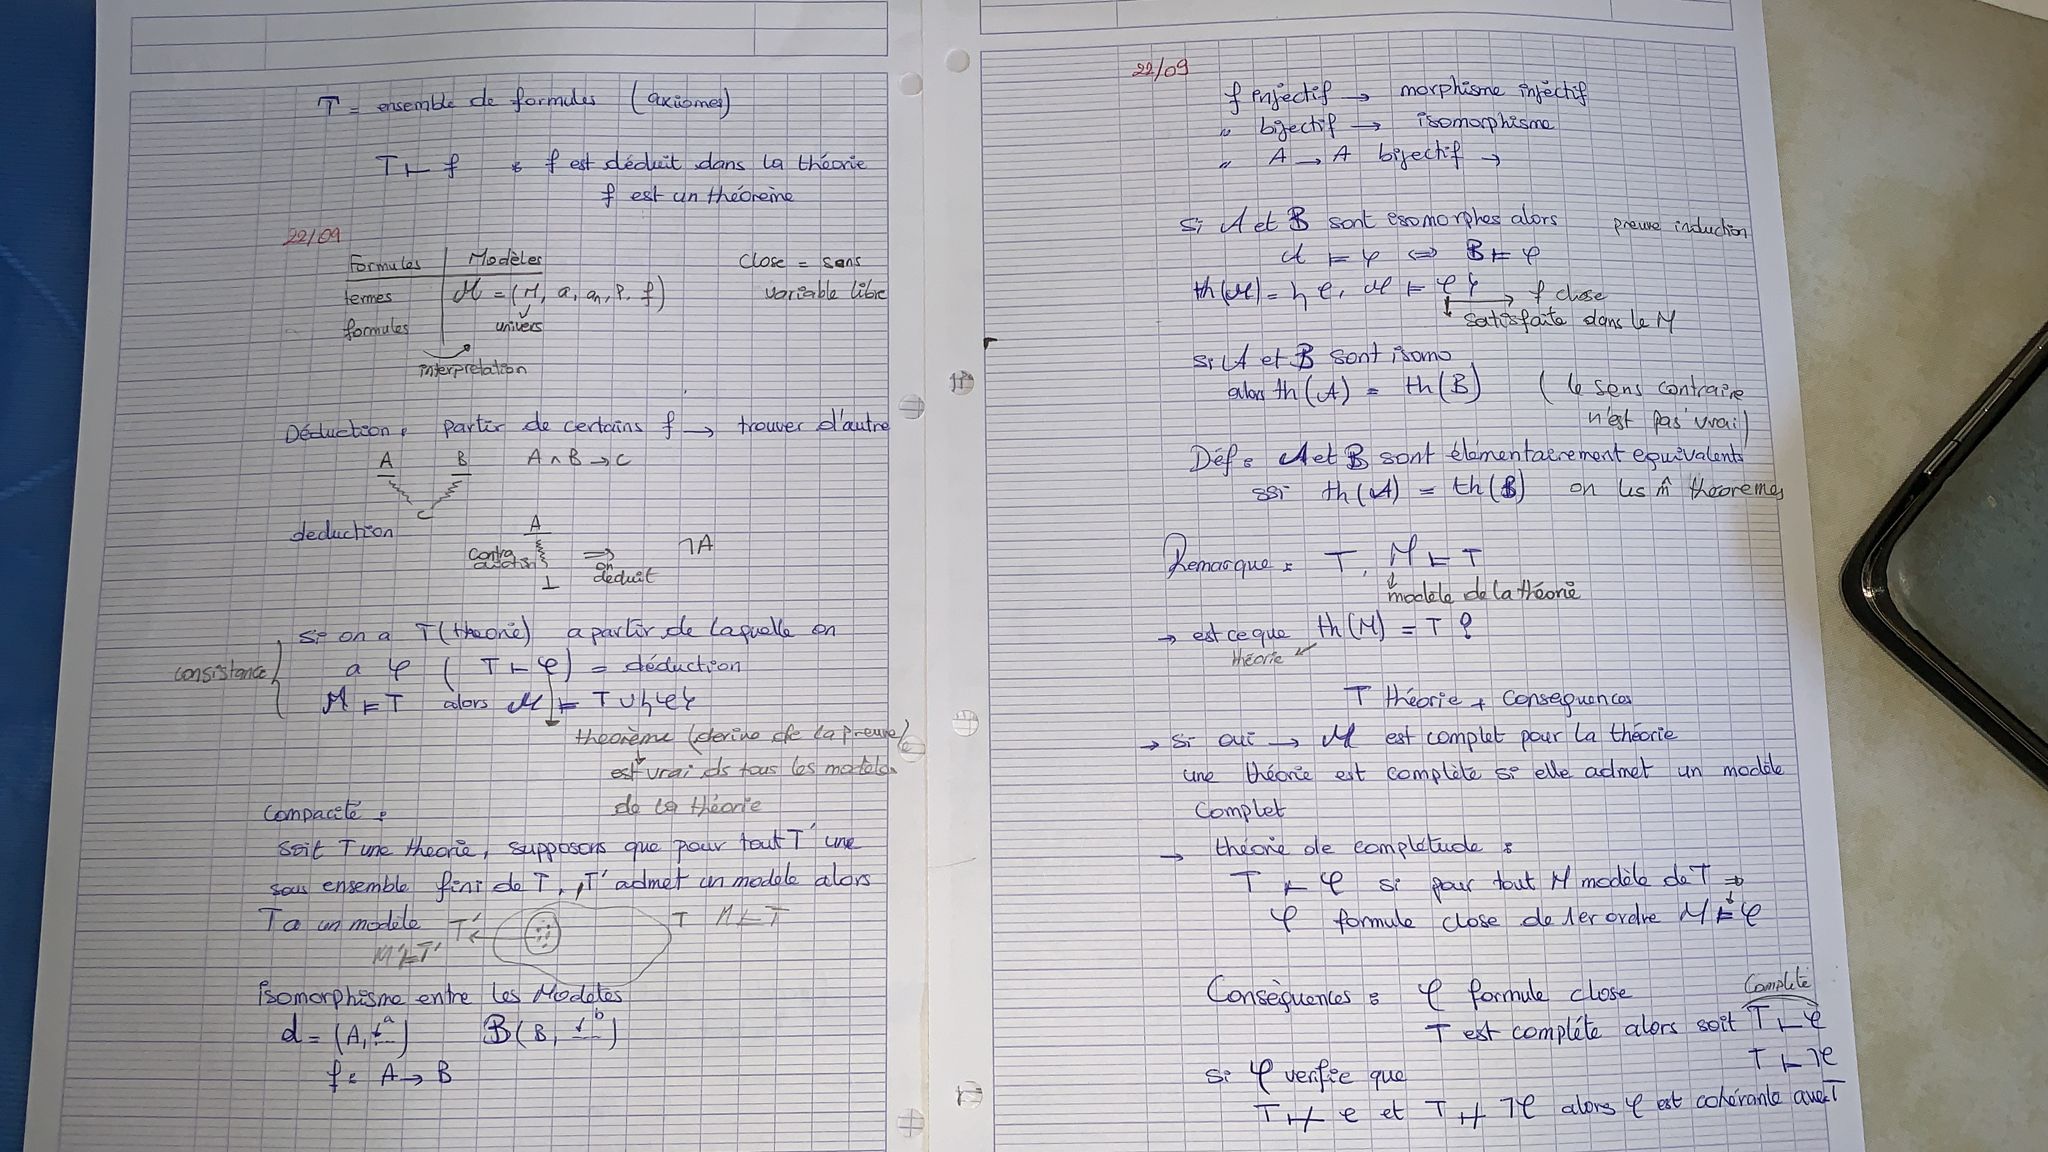 T = ensemble de formules (axiomes)
T ⊢ f : f est déduit dans la théorie
f est un théorème
22/09
Formules | Modèles
termes | M = (M, a, an, P, f)
formules | univers
interprétation
Close = sans
variable libre
Déduction : partir de certains f → trouver d'autre
A B A ∧ B → C
C
deduction
A
contra
diction
⊥
⇒
on
déduit
¬A
si on a T (theorie) a partir de laquelle on
a φ ( T ⊢ φ ) = déduction
consistance
M ⊨ T alors M ⊨ T ∪ {φ}
théorème (derive de la preuve)
est vrai ds tous les models
de la théorie
Compacité :
soit T une theorie, supposons que pour tout T' une
sous ensemble fini de T, T' admet un modèle alors
T a un modèle T' T M ⊨ T
M' ⊨ T'
isomorphisme entre les Modèles
A = (A, a) B (B, b)
f : A → B
22/09
f injectif → morphisme injectif
" bijectif → isomorphisme
" A → A bijectif →
si A et B sont isomorphes alors preuve induction
A ⊨ φ ⇔ B ⊨ φ
th(M) = {φ, M ⊨ φ} → f close
satisfaite dans le M
si A et B sont isomo
alors th(A) = th(B) ( le sens contraire
n'est pas vrai)
Déf : A et B sont élémentairement equivalents
ssi th(A) = th(B) on les m̂ théoremes
Remarque : T, M ⊨ T
modèle de la théorie
→ est ce que th(M) = T ?
théorie
T théorie + consequences
→ si oui → M est complet pour la théorie
une théorie est complète si elle admet un modèle
Complet
→ théorie de complétude :
T ⊢ φ si pour tout M modèle de T ⇒
φ formule close de 1er ordre M ⊨ φ
Conséquences : φ formule close
Complète
T est complète alors soit T ⊢ φ
T ⊢ ¬φ
si φ verifie que
T ⊬ φ et T ⊬ ¬φ alors φ est cohérante avec T